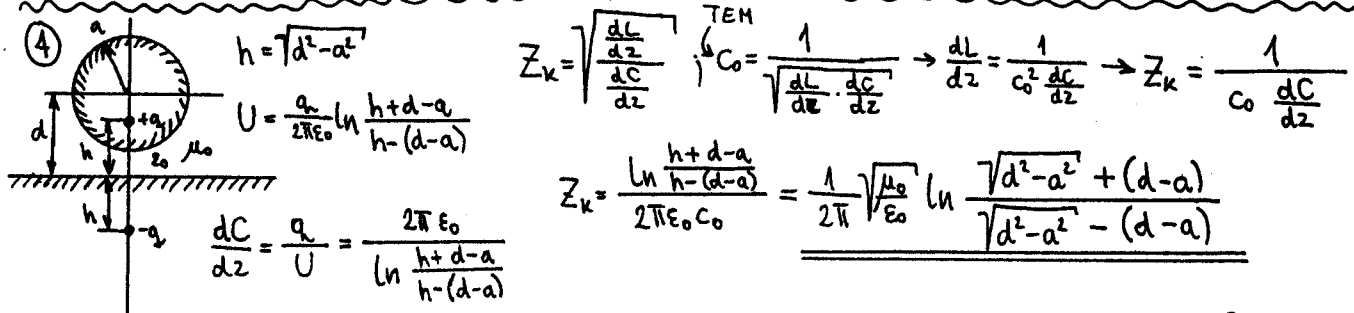 ④ a h = √(d²-a²)
d h +q ε₀ μ₀
h -q
U = q/(2πε₀) ln (h+d-a)/(h-(d-a))
dC/dz = q/U = 2πε₀/(ln (h+d-a)/(h-(d-a)))
TEM
Z_K = √((dL/dz)/(dC/dz)) ; C₀ = 1/√(dL/dz · dC/dz) → dL/dz = 1/(c₀² dC/dz) → Z_K = 1/(c₀ dC/dz)
Z_K = (ln (h+d-a)/(h-(d-a)))/(2πε₀c₀) = 1/(2π) √(μ₀/ε₀) ln (√(d²-a²) + (d-a))/(√(d²-a²) - (d-a))